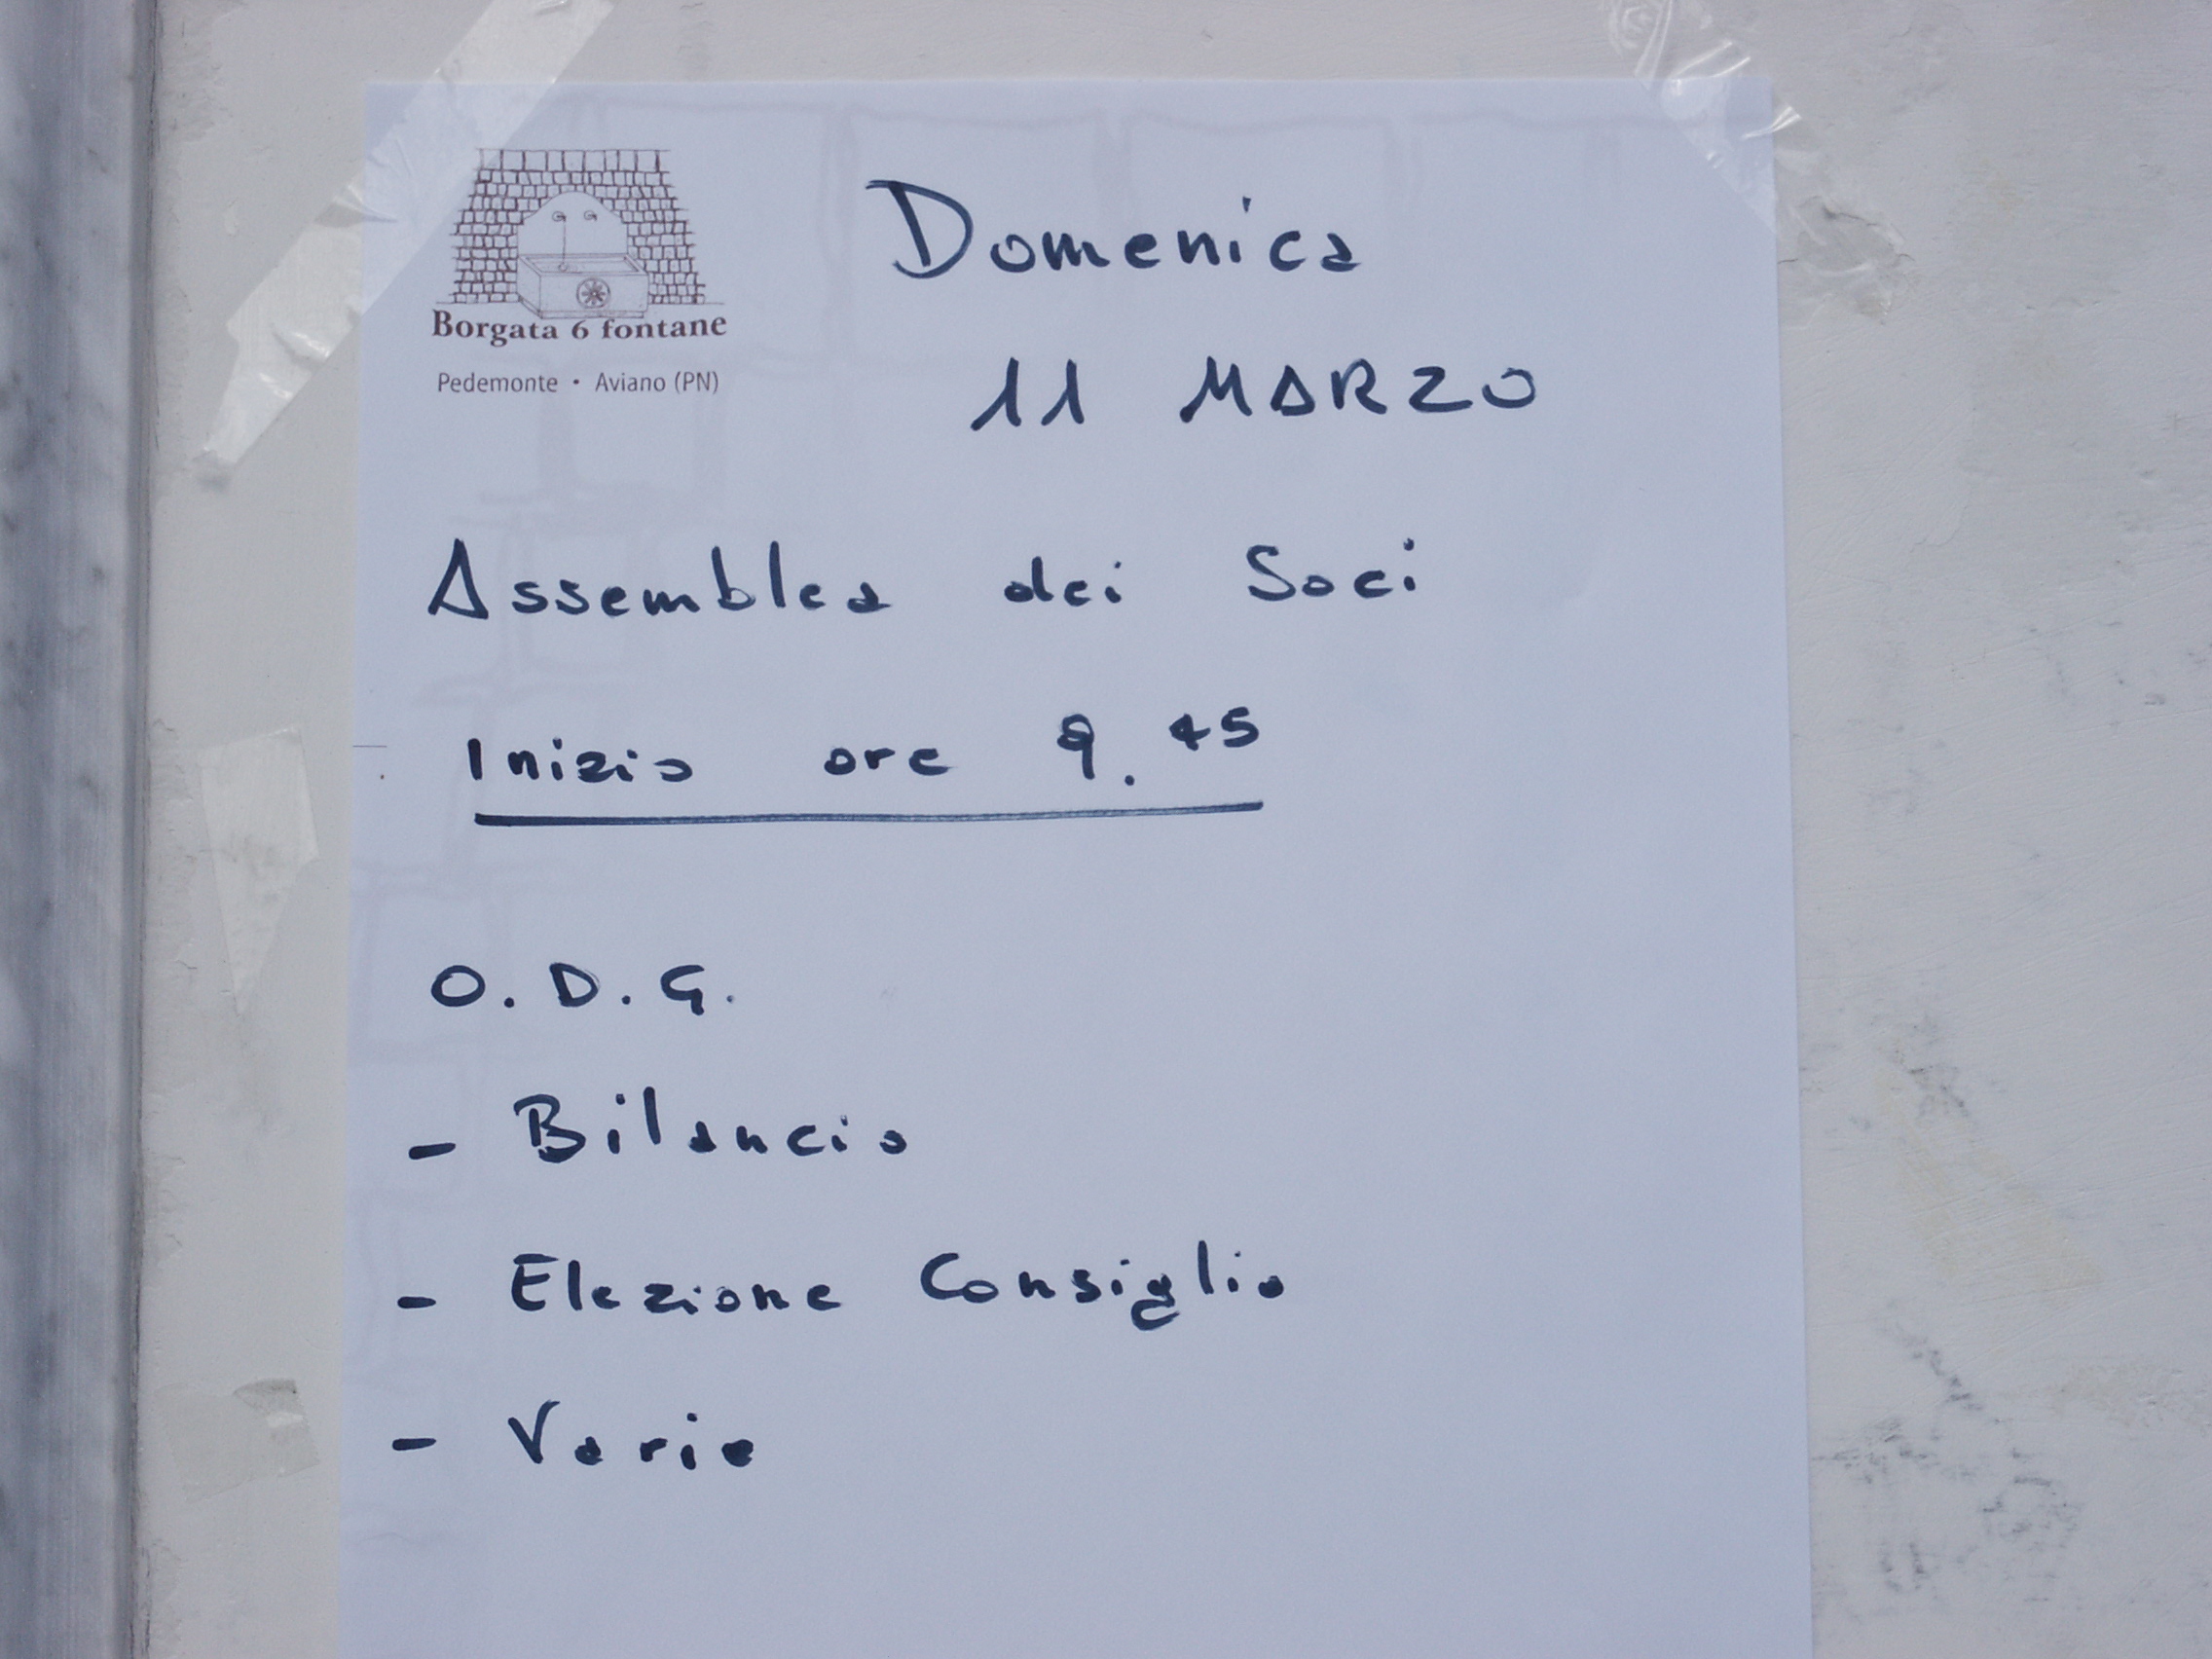 Borgata 6 fontane
Pedemonte • Aviano (PN)
Domenica
11 MARZO
Assemblea dei Soci
Inizio ore 9.45
O.D.G.
- Bilancio
- Elezione Consiglio
- Varie